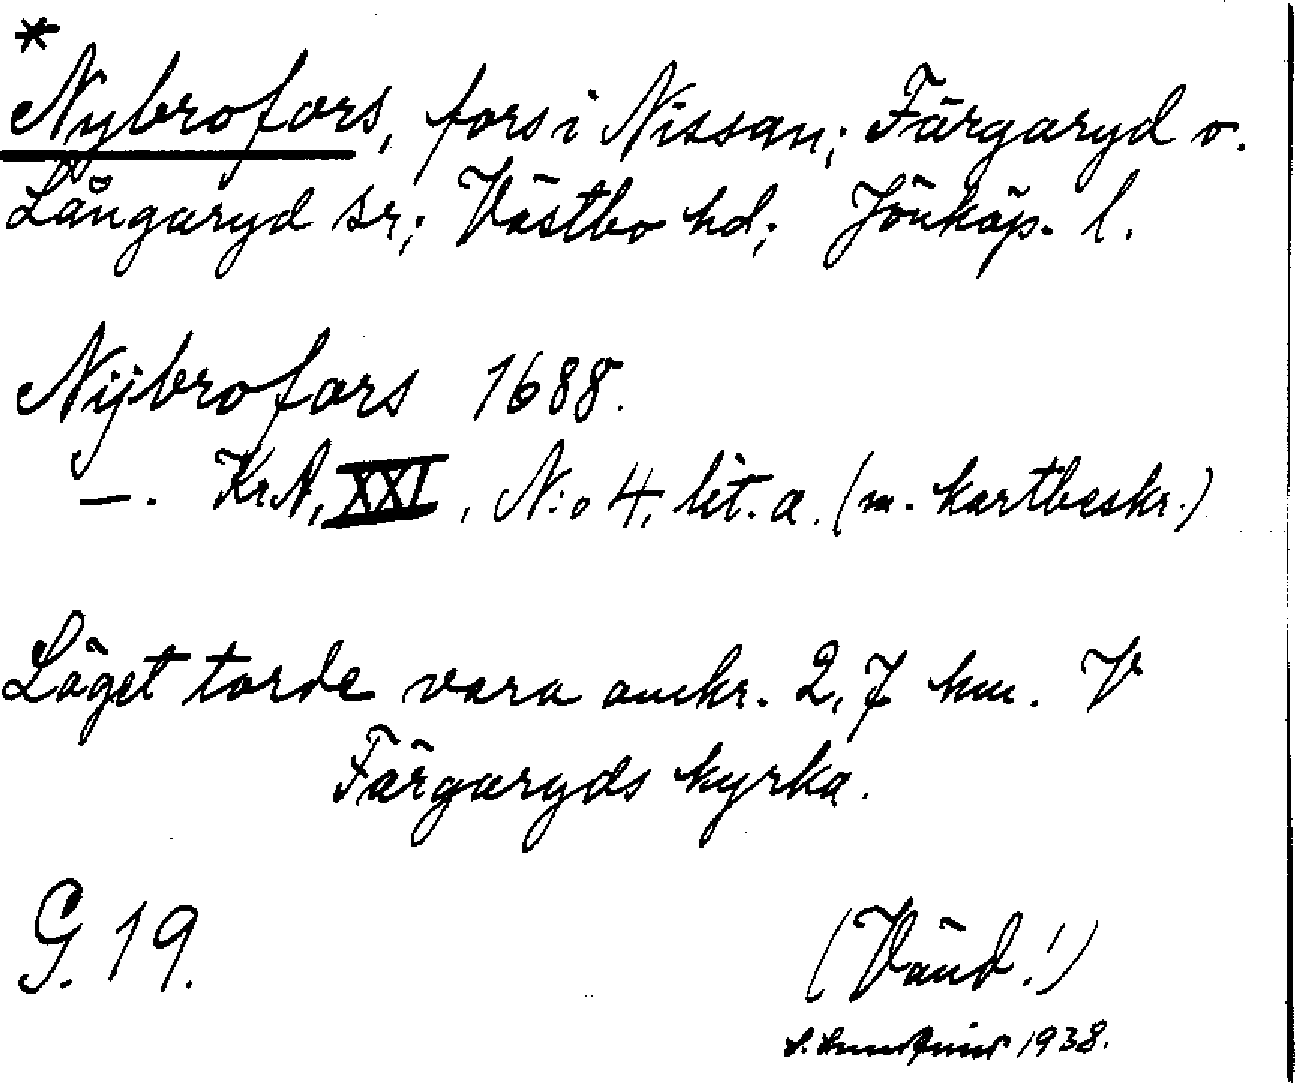 *
Nybrofors, fors i Nissan; Färgaryd o.
Långaryd sr; Västbo hd; Jönköp. l.
Nÿbrofors 1688.
—. KrA, XXI, N:o 4, lit. a. (m. kartbeskr.)
Läget torde vara omkr. 2,7 km. V
Färgaryds kyrka.
G. 19.
(Vänd!)
1938.